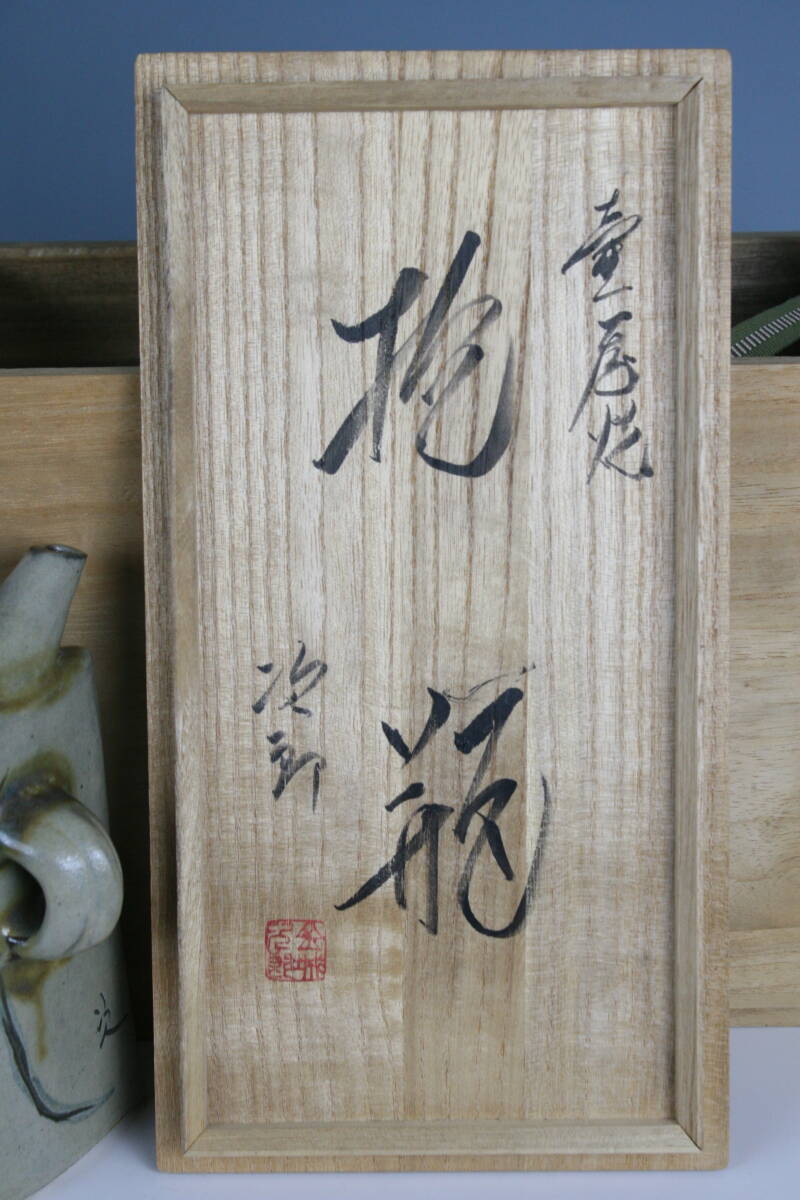 壷屋焼
抱瓶
次郎
次